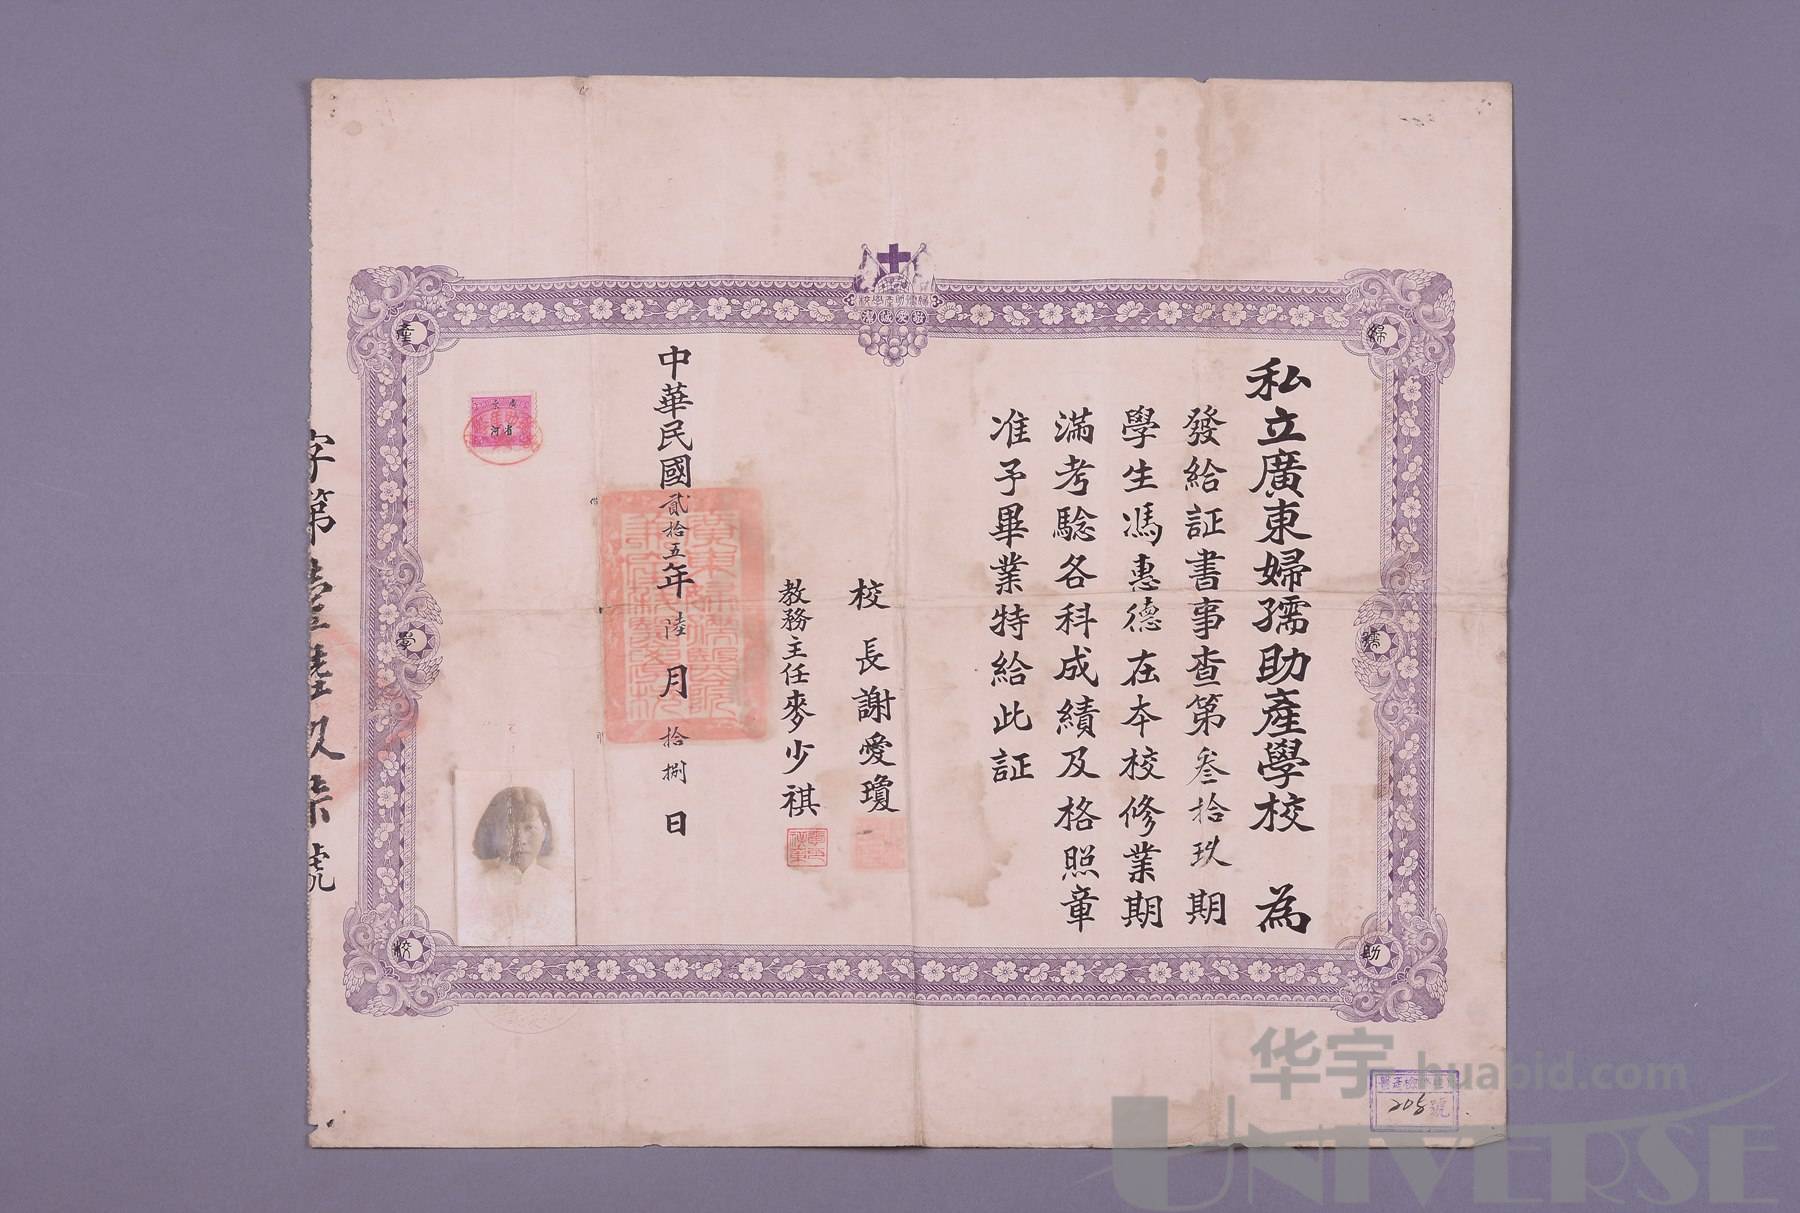 私立廣東婦孺助產學校 為
發給証書事查第叁拾玖期
學生馮惠德在本校修業期
滿考驗各科成績及格照章
准予畢業特給此証
校長謝愛瓊
教務主任麥少祺
中華民國貳拾五年陸月拾捌日
婦
孺
助
產
學
校
華宇 huabid.com
UNIVERSE
號